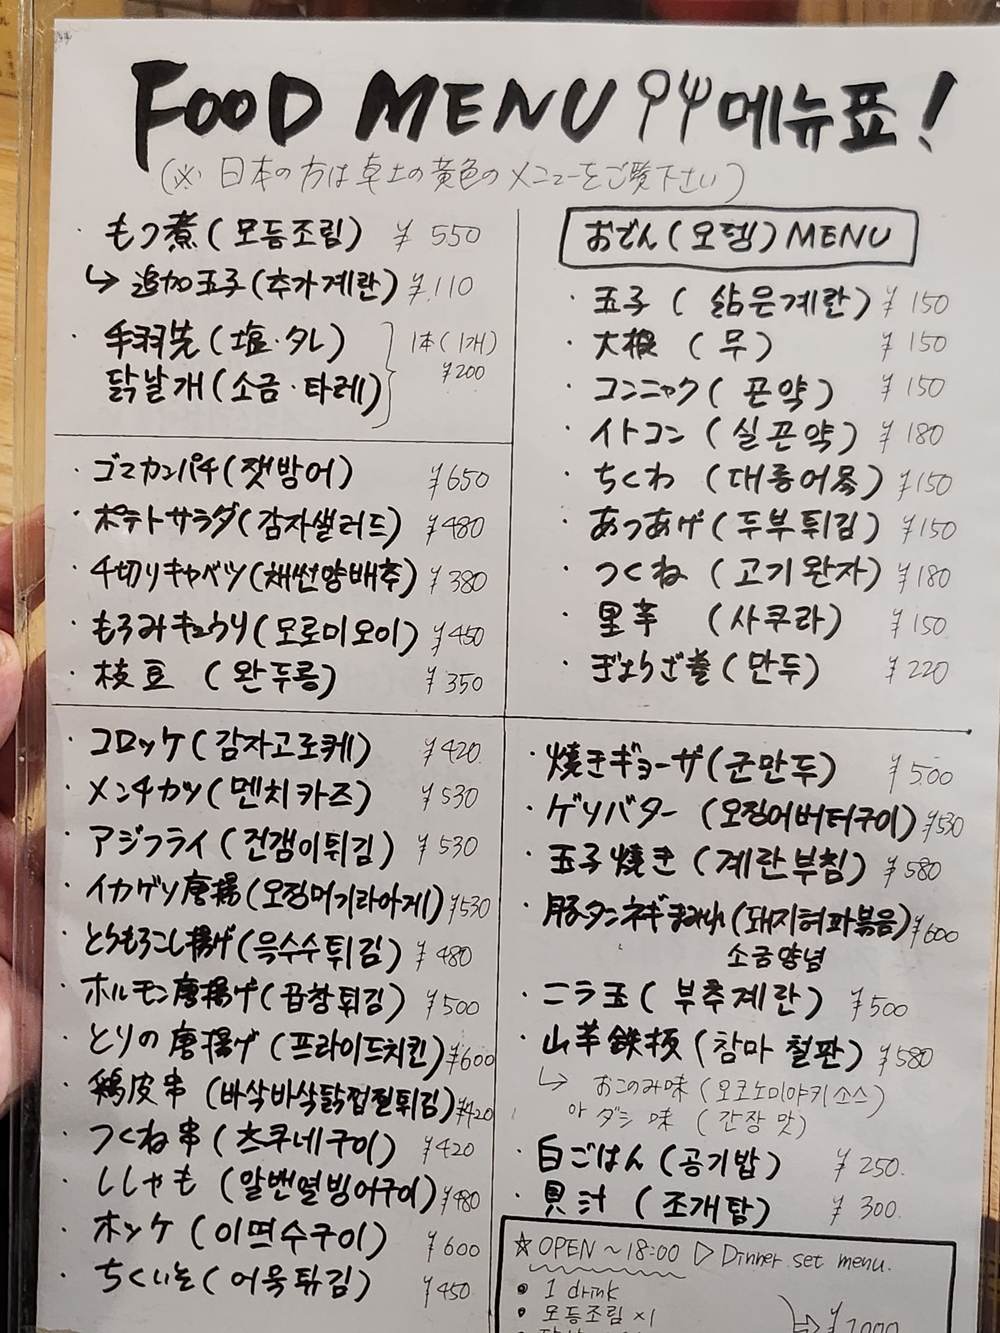 FOOD MENU 메뉴표!
(※ 日本の方は卓上の黄色のメニューをご覧下さい)
もつ煮(모듬조림) ¥550
↳ 追加玉子(추가계란) ¥110
・手羽先(塩・タレ) 1本(1개)
닭날개(소금・타레) ¥200
・ゴマカンパチ(잿방어) ¥650
・ポテトサラダ(감자샐러드) ¥480
・千切りキャベツ(채썬양배추) ¥380
・もろみキュウリ(모로미오이) ¥450
・枝豆 (완두콩) ¥350
・コロッケ(감자고로케) ¥420
・メンチカツ(멘치카즈) ¥530
・アジフライ(전갱이튀김) ¥530
・イカゲソ唐揚(오징어가라아게) ¥530
・とうもろこし揚げ(옥수수튀김) ¥480
・ホルモン唐揚げ(곱창튀김) ¥500
・とりの唐揚げ(프라이드치킨) ¥600
・鶏皮串(바삭바삭닭껍질튀김) ¥420
・つくね串(츠쿠네구이) ¥420
・ししゃも (알밴열빙어구이) ¥480
・ホッケ(이면수구이) ¥600
・ちくいそ(어묵튀김) ¥450
おでん(오뎅)MENU
・玉子 (삶은계란) ¥150
・大根 (무) ¥150
・コンニャク(곤약) ¥150
・イトコン (실곤약) ¥180
・ちくわ (대롱어묵) ¥150
・あつあげ(두부튀김) ¥150
・つくね (고기완자) ¥180
・里芋 (사쿠라) ¥150
・ぎょうざ巻(만두) ¥220
・焼きギョーザ(군만두) ¥500
・ゲソバター (오징어버터구이) ¥530
・玉子焼き(계란부침) ¥580
・豚タンネギまみれ(돼지혀파볶음) ¥600
소금양념
・ニラ玉(부추계란) ¥500
・山芋鉄板(참마 철판) ¥580
↳ おこのみ味 (오코노미야키소스)
or ダシ味 (간장 맛)
・白ごはん(공기밥) ¥250.
・貝汁 (조개탕) ¥300.
☆OPEN〜18:00 ▷ Dinner set menu.
• 1 drink
• 모듬조림 ×1